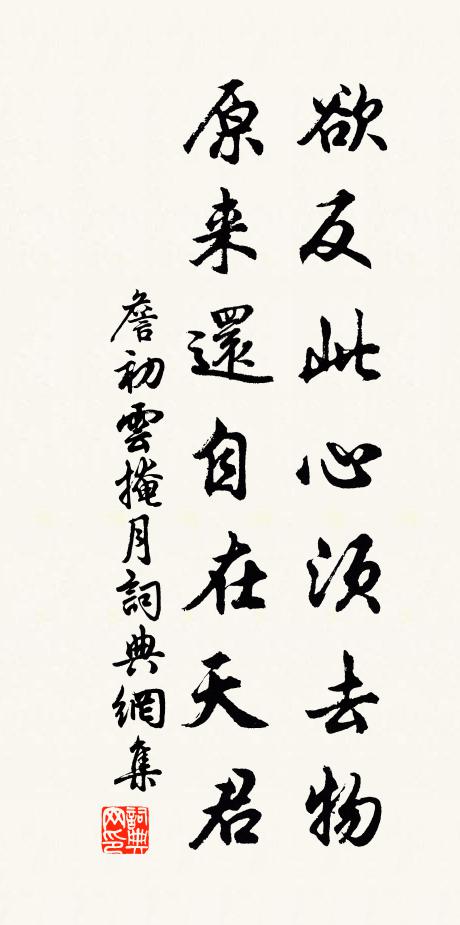 欲反此心須去物
原来還自在天君
詹初雲掩月詞典網集
詞典网印